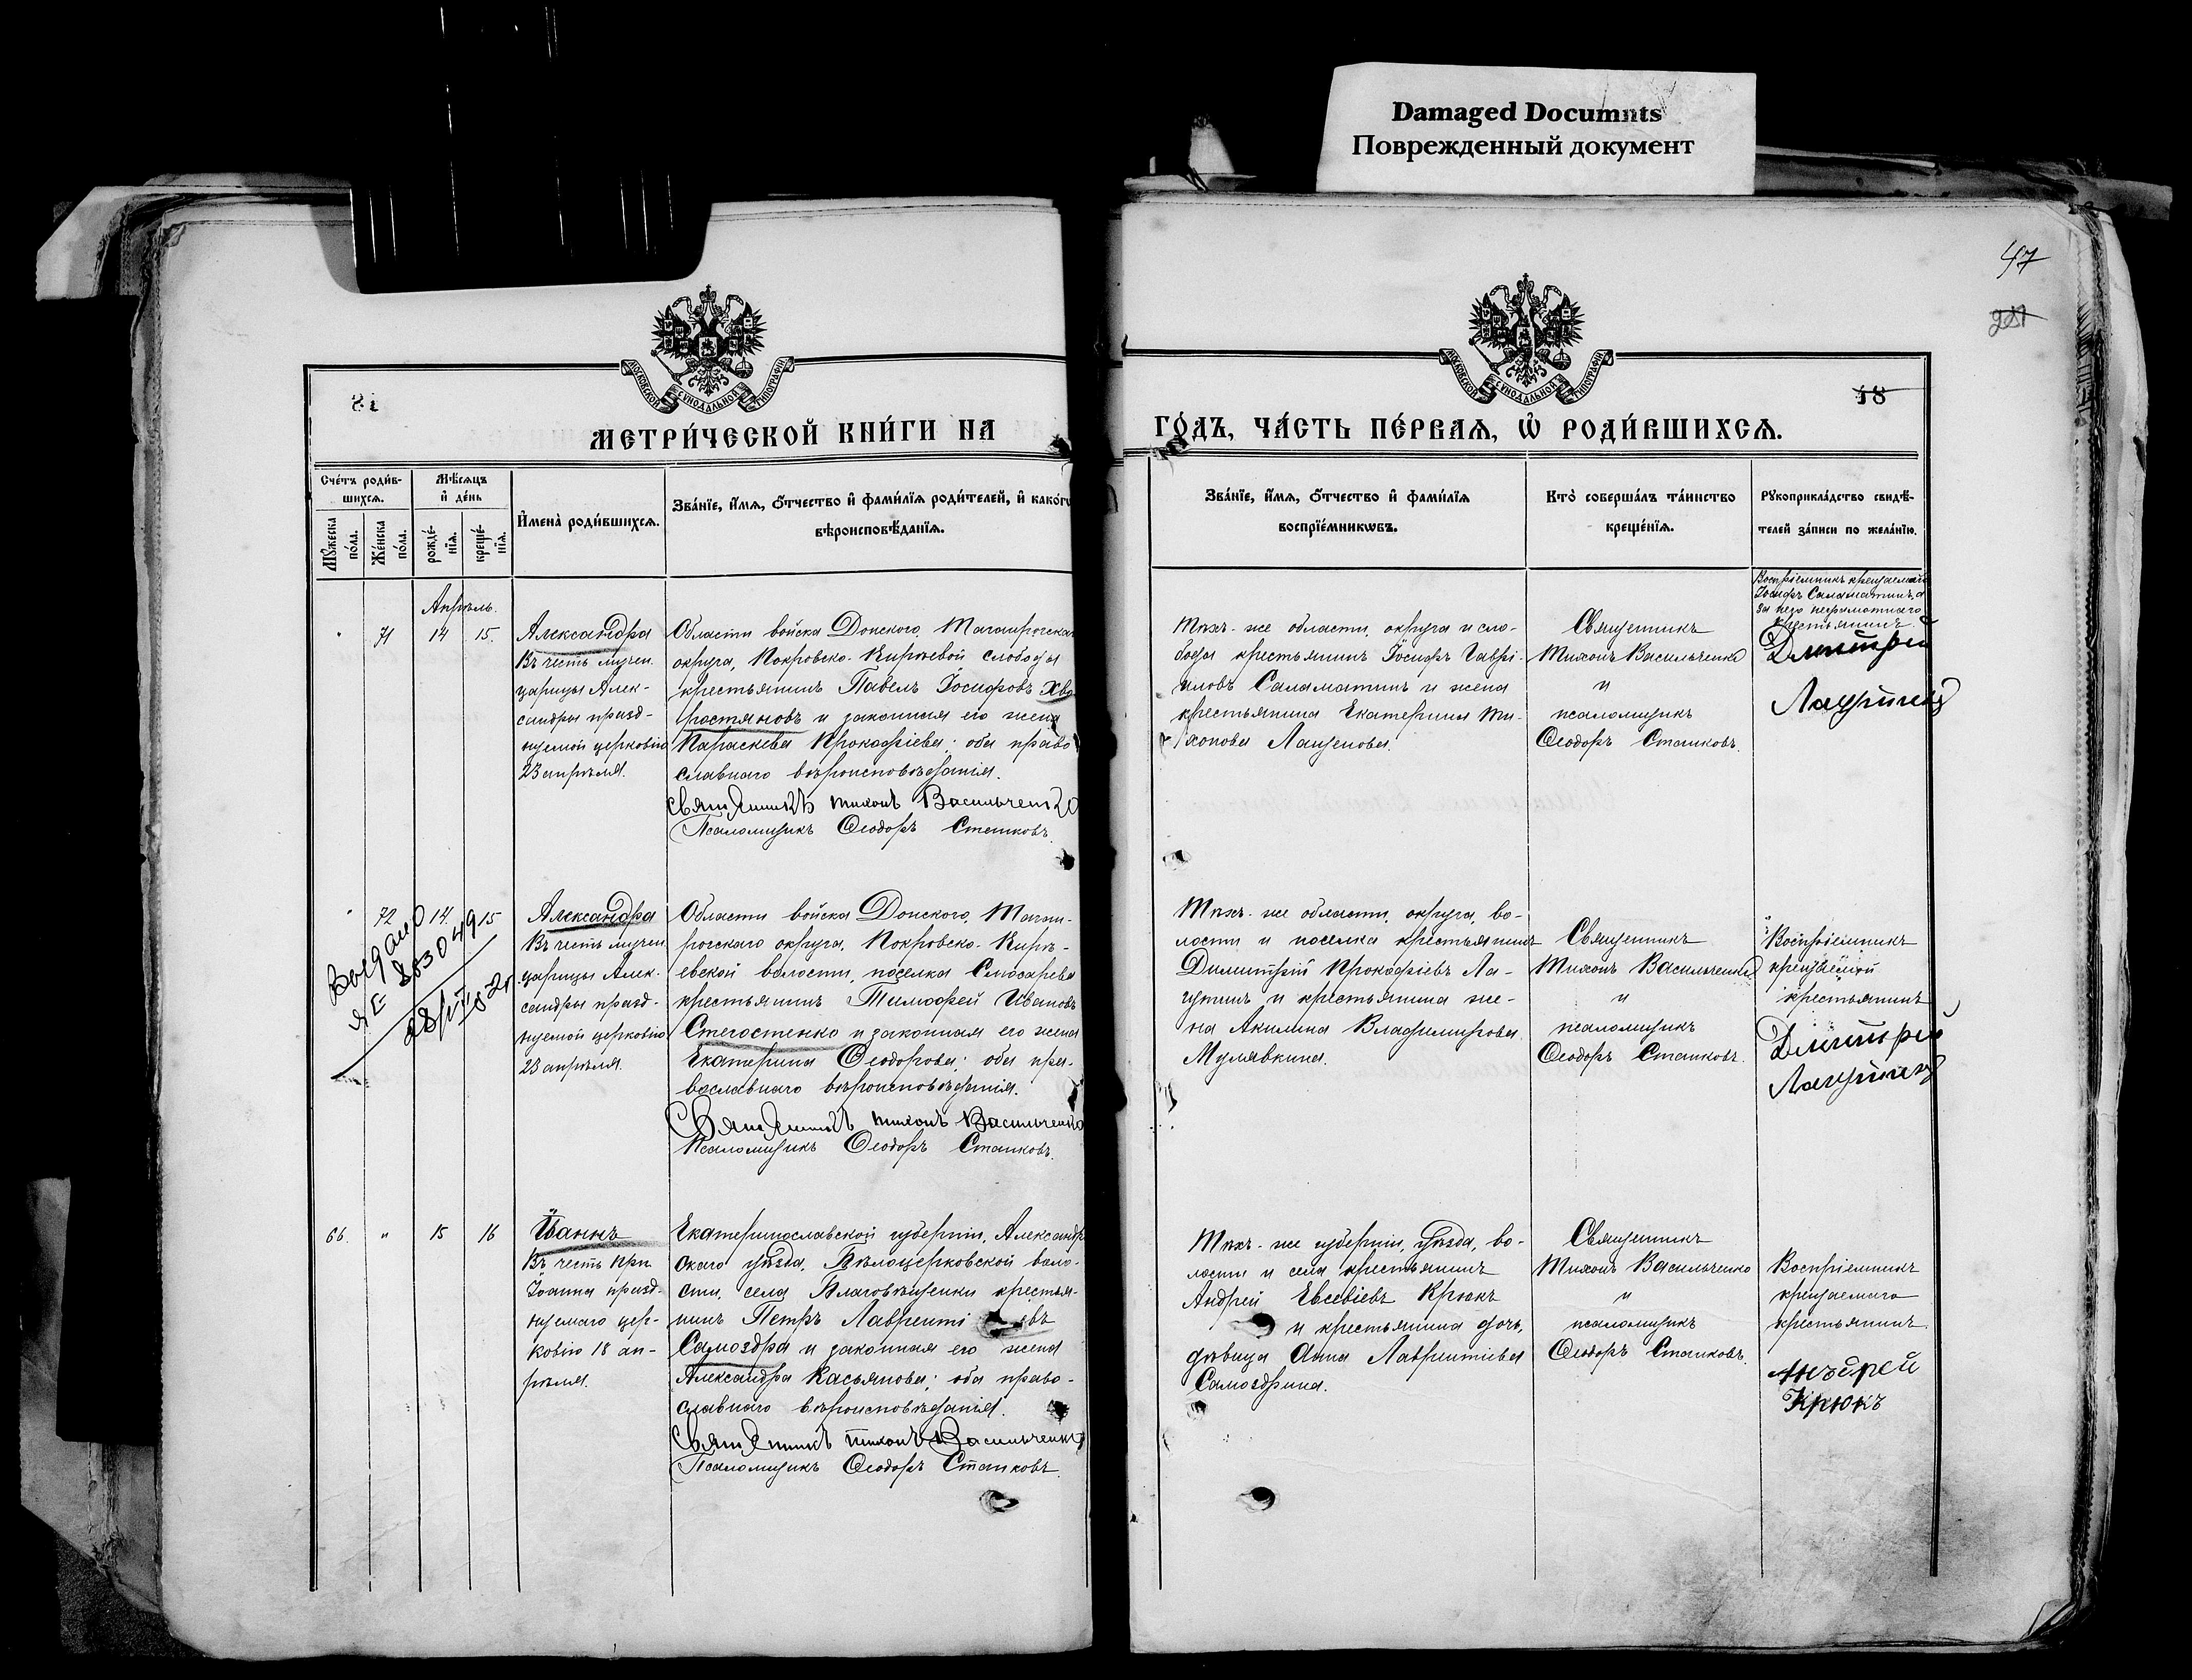 Damaged Documnts
Поврежденный документ
47
МОСКОВСКОЙ СУНОДАЛЬНОЙ ТИПОГРАФІИ
МОСКОВСКОЙ СУНОДАЛЬНОЙ ТИПОГРАФІИ
18
МЕТРИ́ЧЕСКОЙ КНИ́ГИ НА
ГО́ДЪ, ЧА́СТЬ ПЕ́РВАЯ, Ѡ РОДИ́ВШИХСЯ.
Сче́тъ роди́в-
шихся.
Мѣ́сяцъ
и де́нь
Мꙋжеска
по́ла.
Же́нска
по́ла.
рожде́-
нїя.
креще́-
нїя.
Имена̀ роди́вшихся.
Зва́нїе, и́мя, ѻ́тчество и фами́лїя роди́телей, и како́гѡ
вѣроисповѣ́данїя.
Зва́нїе, и́мя, ѻ́тчество и фами́лїя
воспрїе́мникѡвъ.
Кто̀ соверша́лъ та́инство
креще́нїя.
Рꙋкоприкла́дство свидѣ́-
телей за́писи по жела́нїю.
Апрѣль.
71
14
15.
Александра
Въ честь мучен.
царицы Алек-
сандры празд-
нуемой церковію
23 апрѣля.
Области войска Донского, Таганрогскаго
округа, Покровско-Кирѣевой слободы
крестьянинъ Павелъ Іосифовъ Хво-
ростяновъ и законная его жена
Параскева Прокофіева; оба право-
славнаго вѣроисповѣданія.
Священникъ Тихонъ Васильченко
Псаломщикъ Ѳеодоръ Станковъ.
Тѣхъ-же области, округа и сло-
боды крестьянинъ Іосифъ Гаврі-
иловъ Саламатинъ и жена
крестьянина Екатерина Ти-
хонова Лащенова.
Священникъ
Тихонъ Васильченко
и
псаломщикъ
Ѳеодоръ Станковъ.
Воспріемникъ крещаемой
Іосифъ Саламатинъ, а
за него неграмотнаго
крестьянинъ
Дмитрій
Лагутинъ
72
14.
15
Выдано
ЯЕ 803049
Александра
Въ честь мучен.
царицы Алек-
сандры празд-
нуемой церковію
23 апрѣля.
Области войска Донского, Таган-
рогскаго округа, Покровско-Кирѣ-
евской волости, поселка Слюсарева
крестьянинъ Тимофей Ивановъ
Стегостенко и законная его жена
Екатерина Ѳеодорова; оба пра-
вославнаго вѣроисповѣданія.
Священникъ Тихонъ Васильченко
Псаломщикъ Ѳеодоръ Станковъ.
Тѣхъ-же области, округа, во-
лости и поселка крестьянинъ
Димитрій Прокофіевъ Ла-
гутинъ и крестьянина же-
на Акилина Владимирова
Мулявкина.
Священникъ
Тихонъ Васильченко
и
псаломщикъ
Ѳеодоръ Станковъ.
Воспріемникъ
крещаемой
крестьянинъ
Дмитрій
Лагутинъ
66.
"
15
16
Іоаннъ
Въ честь прп.
Іоанна празд-
нуемаго цер-
ковію 18 ап-
рѣля.
Екатеринославской губерніи, Александр-
скаго уѣзда, Бѣлоцерковской воло-
сти, села Благовѣщенки крестья-
нинъ Петръ Лаврентіевъ
Самоздра и законная его жена
Александра Касьянова; оба право-
славнаго вѣроисповѣданія.
Священникъ Тихонъ Васильченко
Псаломщикъ Ѳеодоръ Станковъ.
Тѣхъ-же губерніи, уѣзда, во-
лости и села крестьянинъ
Андрей Евсевіевъ Крюкъ
и крестьянина дочь,
дѣвица Анна Лаврентіева
Самоздрина.
Священникъ
Тихонъ Васильченко
и
псаломщикъ
Ѳеодоръ Станковъ.
Воспріемникъ
крещаемаго
крестьянинъ
Андрей
Крюкъ